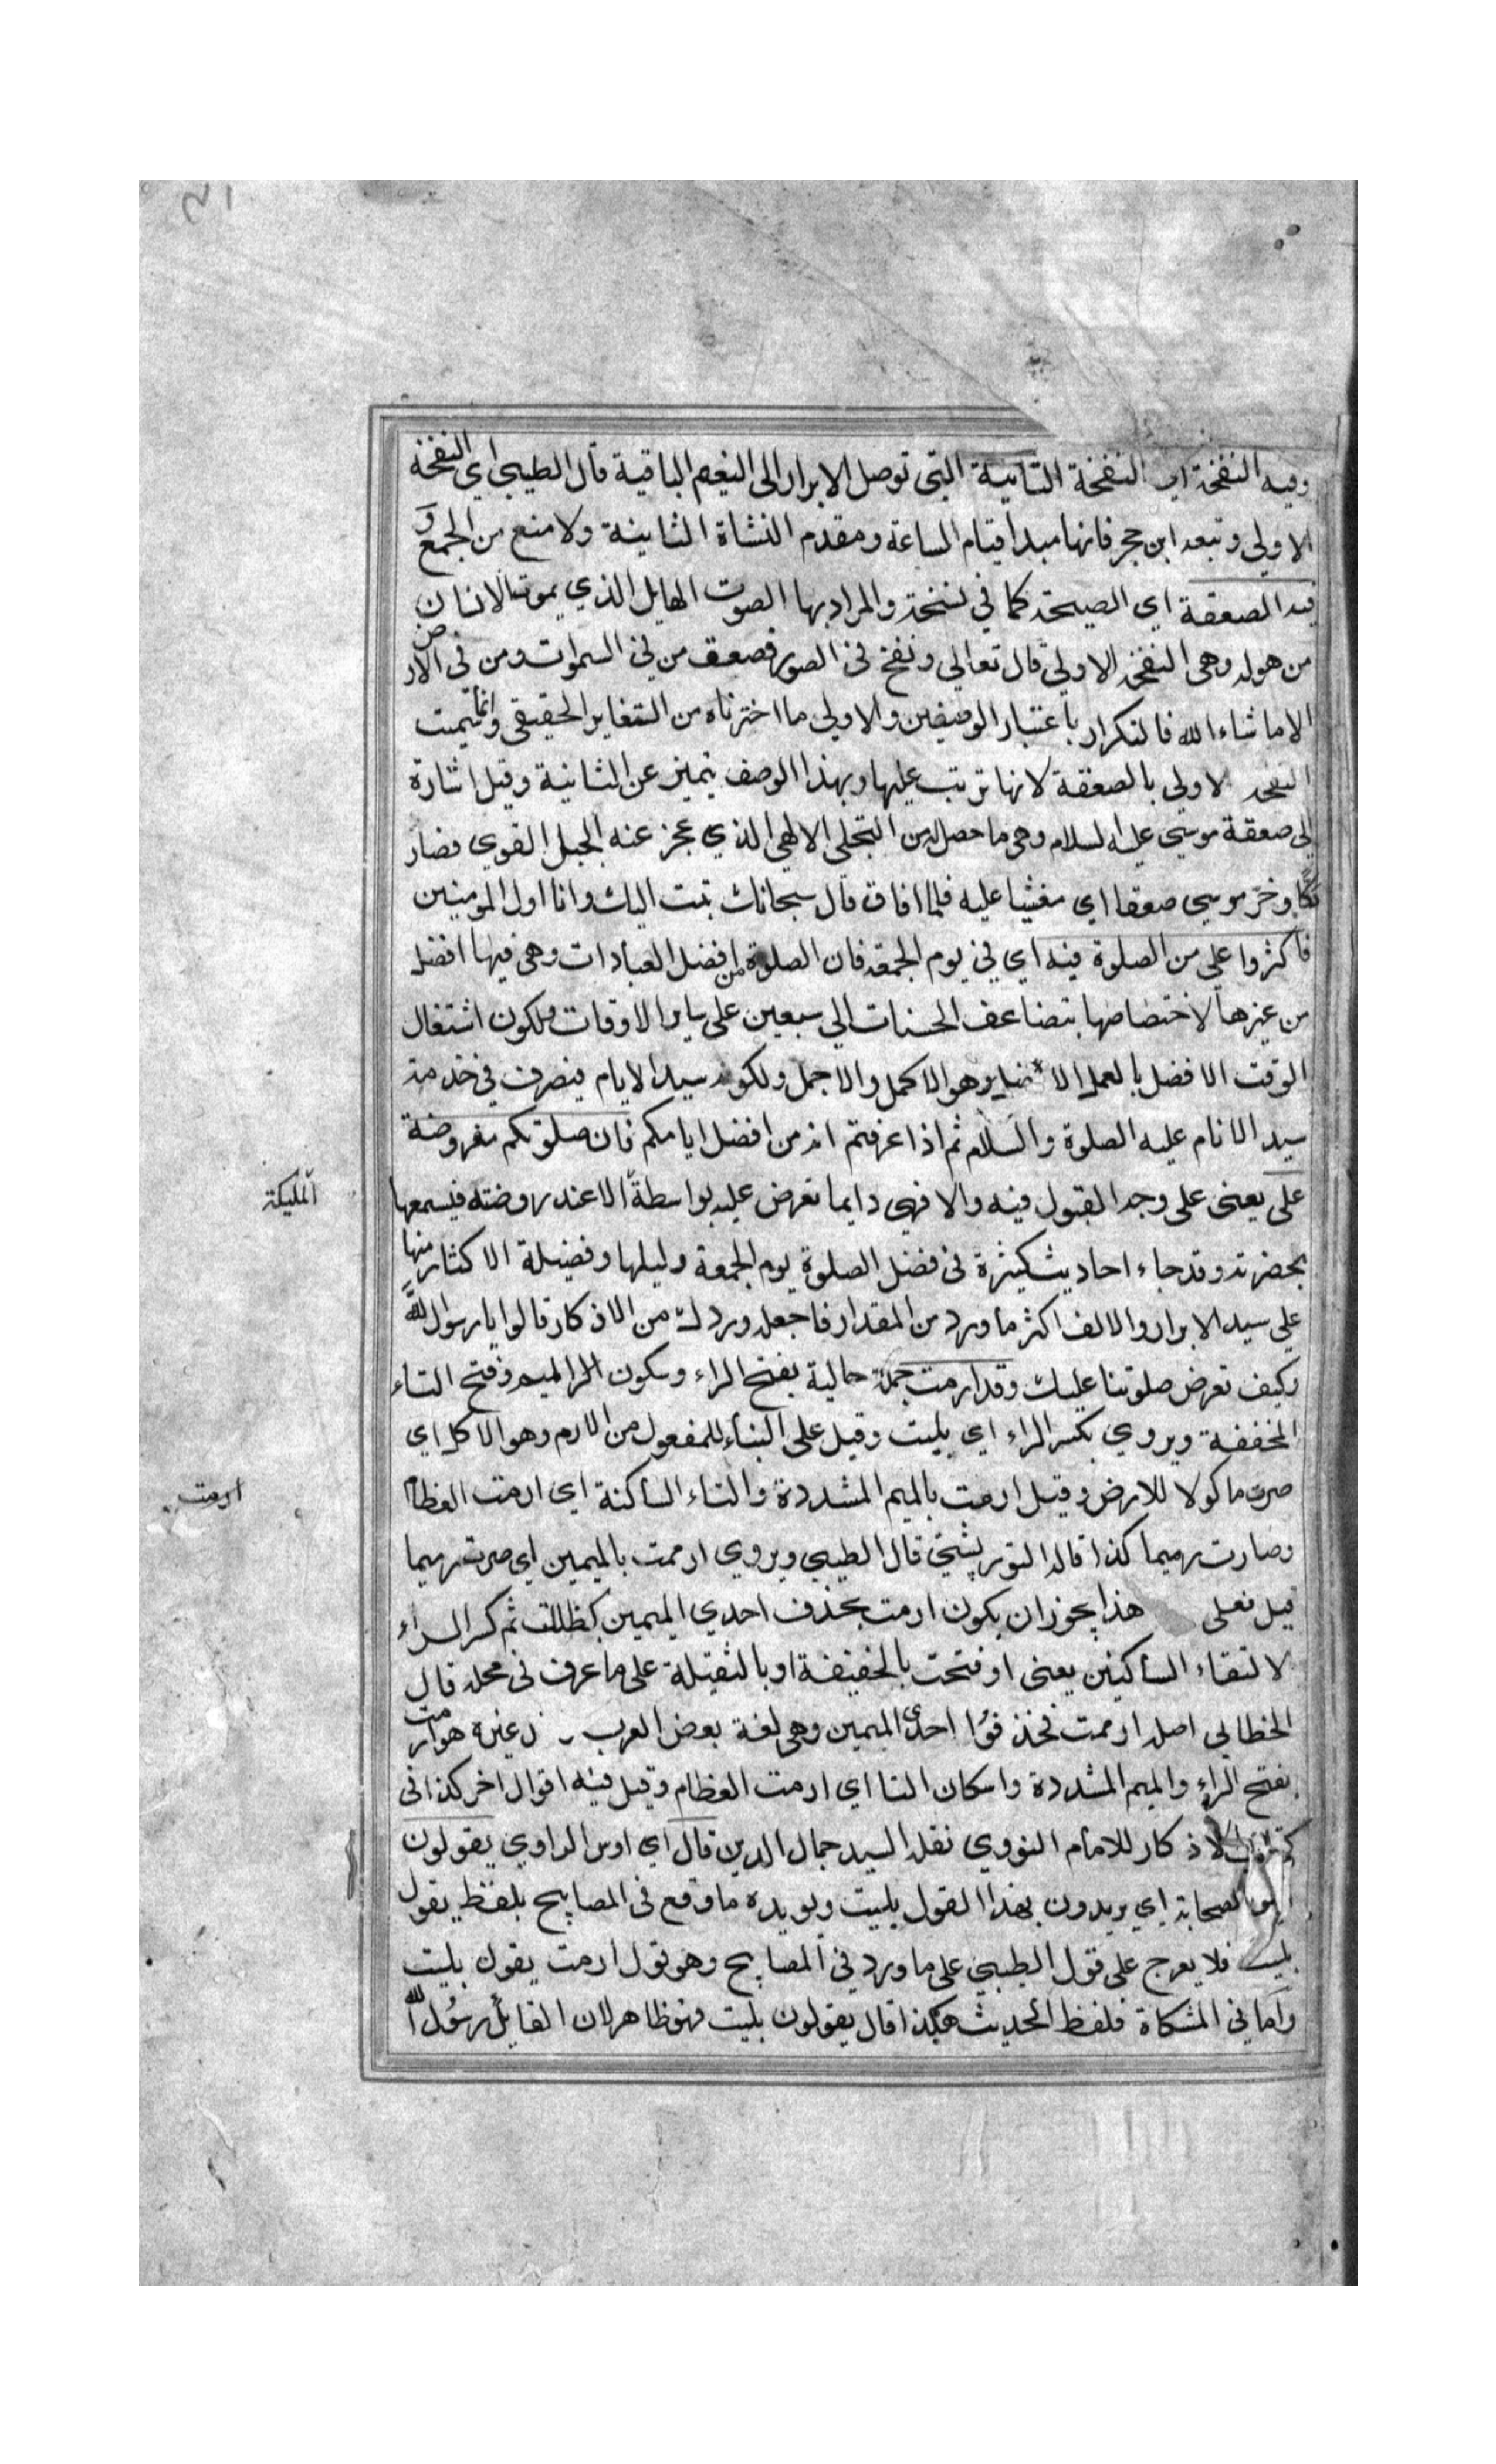 وفيه النفخة اي النفخة الثانية التي توصل الابرار الى النعيم الباقية قال الطيبي اي النفخة
الاولى وتبعه ابن حجر فانها مبدا قيام الساعة ومقدم النشاة الثانية ولا منع من الجمع و
فيه الصعقة اي الصيحة كما في نسخة والمراد بها الصوت الهايل الذي يموت الانسان
من هوله وهي النفخة الاولى قال تعالى ونفخ في الصور فصعق من في السموات ومن في الارض
الا ما شاء الله فالتكرار باعتبار الوصفين والاولى ما اخترناه من التغاير الحقيقي وانما سميت
النفخة الاولى بالصعقة لانها ترتب عليها وبهذا الوصف يتميز عن الثانية وقيل اشارة
الى صعقة موسى عليه السلام وهي ما حصل له من التجلي الالهي الذي عجز عنه الجبل القوي فصار
دكا وخر موسى صعقا اي مغشيا عليه فلما افاق قال سبحانك تبت اليك وانا اول المومنين
فاكثروا علي من الصلوة فيه اي في يوم الجمعة فان الصلوة من افضل العبادات وهي فيها افضل
من غيرها لاختصاصها بتضاعف الحسنات الى سبعين على ساير الاوقات ولكون اشتغال
الوقت الافضل بالعمل الافضل هو الاكمل والاجمل ولكونه سيد الايام فيصرف في خدمة
سيد الانام عليه الصلوة والسلام ثم اذا عرفتم انه من افضل ايامكم فان صلوتكم معروضة
علي يعني على وجه القبول فيه والا فهي دايما تعرض عليه بواسطة الا عند روضته فيسمعها
الملىكة
بحضرته وقد جاء احاديث كثيرة في فضل الصلوة يوم الجمعة وليلها وفضيلة الاكثار منها
على سيد الابرار والالف اكثر ما ورد من المقدار فاجعله وردك من الاذكار قالوا يا رسول الله
وكيف تعرض صلوتنا عليك وقد ارمت جملة حالية بفتح الراء وسكون الميم وفتح التاء
المخففة ويروي بكسر الراء اي بليت وقيل على البناء للمفعول من الارم وهو الاكل اي
صرت ماكولا للارض وقيل ارمت بالميم المشددة والتاء الساكنة اي ارمت العظام
ارمت
وصارت رميما كذا قاله التوربشتي قال الطيبي ويروي ارممت بالميمين اي صرت رميما
قيل فعلى هذا يجوز ان يكون ارمت بحذف احدي الميمين كظللت ثم كسر الراء
لالتقاء الساكنين يعني او فتحت بالخفيفة او بالثقيلة على ما عرف في محله قال
الخطابي اصله ارممت فحذفوا احدى الميمين وهي لغة بعض العرب وغيره هو ارمت
بفتح الراء والميم المشددة واسكان التا اي ارمت العظام وقيل فيه اقوال اخر كذا في
كتاب الاذكار للامام النووي نقله السيد جمال الدين قال اي اوس الراوي يقولون
اي الصحابة اي يريدون بهذا القول بليت ويويده ما وقع في المصابيح بلفظ يقول
بليت فلا يعرج على قول الطيبي على ما ورد في المصابيح وهو قول ارمت يقول بليت
واما في المشكاة فلفظ الحديث هكذا قال يقولون بليت فهو ظاهر لان القايل رسول الله